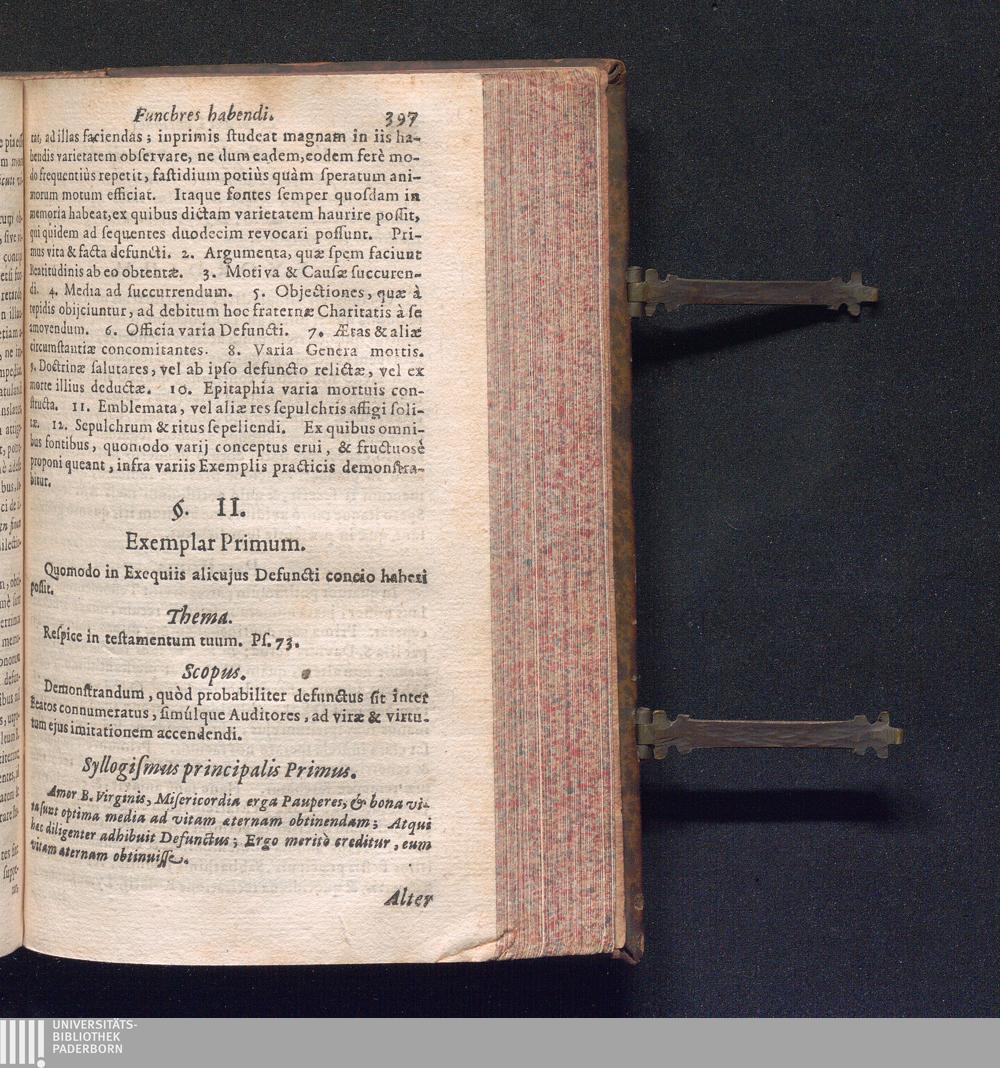 Funebres habendi. 397
tat, ad illas faciendas; inprimis ſtudeat magnam in iis ha-
bendis varietatem obſervare, ne dum eadem, eodem ferè mo-
do frequentiùs repetit, faſtidium potiùs quàm ſperatum ani-
morum motum efficiat. Itaque fontes ſemper quoſdam in
memoria habeat, ex quibus dictam varietatem haurire poſſit,
qui quidem ad ſequentes duodecim revocari poſſunt. Pri-
mus vita & facta defuncti. 2. Argumenta, quæ ſpem faciunt
Beatitudinis ab eo obtentæ. 3. Motiva & Cauſæ ſuccuren-
di. 4. Media ad ſuccurrendum. 5. Objectiones, quæ à
tepidis obijciuntur, ad debitum hoc fraternæ Charitatis à ſe
amovendum. 6. Officia varia Defuncti. 7. Ætas & aliæ
circumſtantiæ concomitantes. 8. Varia Genera mortis.
9. Doctrinæ ſalutares, vel ab ipſo defuncto relictæ, vel ex
morte illius deductæ. 10. Epitaphia varia mortuis con-
ſtructa. 11. Emblemata, vel aliæ res ſepulchris affigi ſoli-
tæ. 12. Sepulchrum & ritus ſepeliendi. Ex quibus omni-
bus fontibus, quomodo varij conceptus erui, & fructuosè
proponi queant, infra variis Exemplis practicis demonſtra-
bitur.
§. II.
Exemplar Primum.
Quomodo in Exequiis alicujus Defuncti concio haberi
poſſit.
Thema.
Reſpice in teſtamentum tuum. Pſ. 73.
Scopus.
Demonſtrandum, quòd probabiliter defunctus ſit inter
Beatos connumeratus, ſimúlque Auditores, ad vitæ & virtu-
tum ejus imitationem accendendi.
Syllogiſmus principalis Primus.
Amor B. Virginis, Miſericordia erga Pauperes, & bona vi-
ta ſunt optima media ad vitam æternam obtinendam; Atqui
hæc diligenter adhibuit Defunctus; Ergo meritò creditur, eum
vitam æternam obtinuiſſe.
Alter
UNIVERSITÄTS-
BIBLIOTHEK
PADERBORN